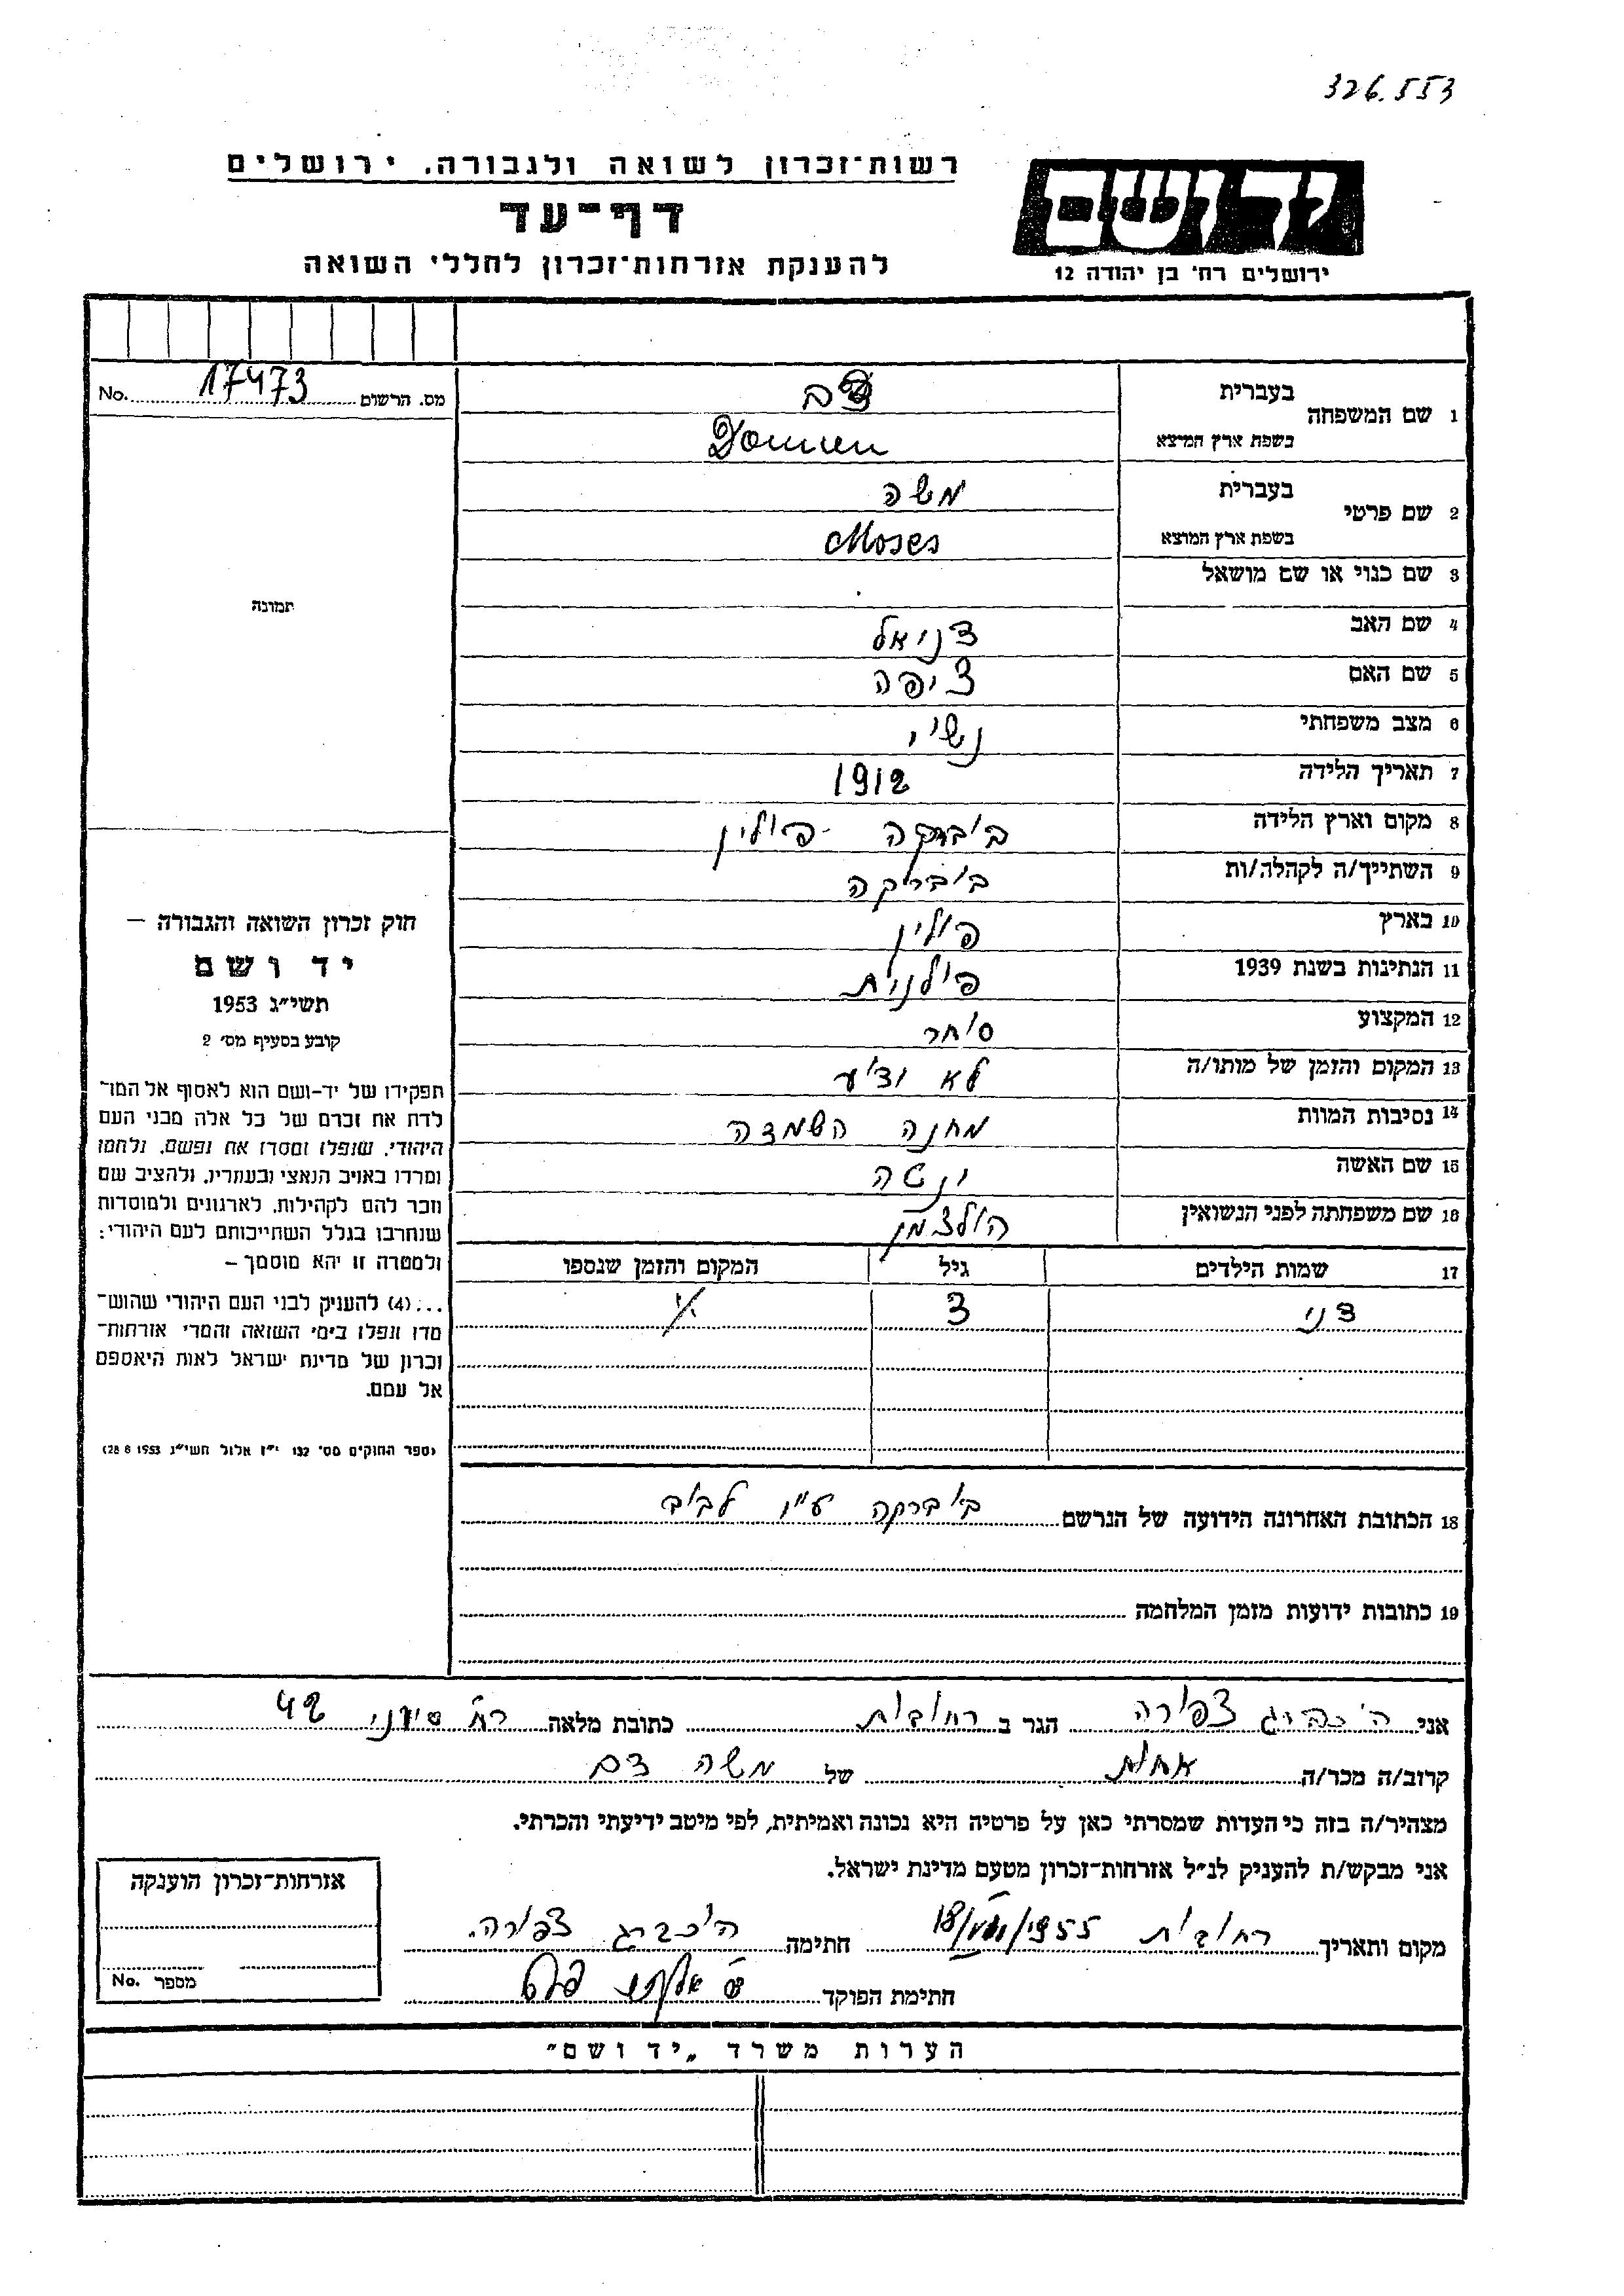 326.553
רשות־זכרון לשואה ולגבורה. ירושלים
דף־עד
להענקת אזרחות־זכרון לחללי השואה
יד ושם
ירושלים רח׳ בן יהודה 12
מס. הרשום 17473 No.
תמונה
1 שם המשפחה
בעברית
בשפת ארץ המוצא
2 שם פרטי
בעברית משה
בשפת ארץ המוצא Moses
3 שם כנוי או שם מושאל
4 שם האב דניאל
5 שם האם ציפה
6 מצב משפחתי נשוי
7 תאריך הלידה 1912
8 מקום וארץ הלידה בוברקה - פולין
9 השתייך/ה לקהלה/ות בוברקה
10 בארץ פולין
11 הנתינות בשנת 1939 פולנית
12 המקצוע סוחר
13 המקום והזמן של מותו/ה לא ידוע
14 נסיבות המוות מחנה השמדה
15 שם האשה
16 שם משפחתה לפני הנשואין הולצמן
17 שמות הילדים גיל המקום והזמן שנספו
דני 3
18 הכתובת האחרונה הידועה של הנרשם בוברקה ע״י לבוב
19 כתובות ידועות מזמן המלחמה
חוק זכרון השואה והגבורה –
יד ושם
תשי״ג 1953
קובע בסעיף מס׳ 2
תפקידו של יד-ושם הוא לאסוף אל המו־
לדת את זכרם של כל אלה מבני העם
היהודי, שנפלו ומסרו את נפשם, נלחמו
ומרדו באויב הנאצי ובעוזריו, ולהציב שם
וזכר להם לקהילות, לארגונים ולמוסדות
שנחרבו בגלל השתייכותם לעם היהודי;
ולמטרה זו יהא מוסמך –
...(4) להעניק לבני העם היהודי שהוש־
מדו ונפלו בימי השואה והמרי אזרחות־
זכרון של מדינת ישראל לאות היאספם
אל עמם.
(ספר החוקים מס׳ 132 י״ז אלול תשי״ג 28.8.1953)
אני צפורה הגר ב רחובות כתובת מלאה רח׳ 42
קרוב/ה מכר/ה אחות של משה דם
מצהיר/ה בזה כי העדות שמסרתי כאן על פרטיה היא נכונה ואמיתית, לפי מיטב ידיעתי והכרתי.
אני מבקש/ת להעניק לנ״ל אזרחות־זכרון מטעם מדינת ישראל.
מקום ותאריך רחובות 18/VIII/1955 חתימה צפורה
חתימת הפוקד
אזרחות־זכרון הוענקה
מספר No.
הערות משרד „יד ושם״